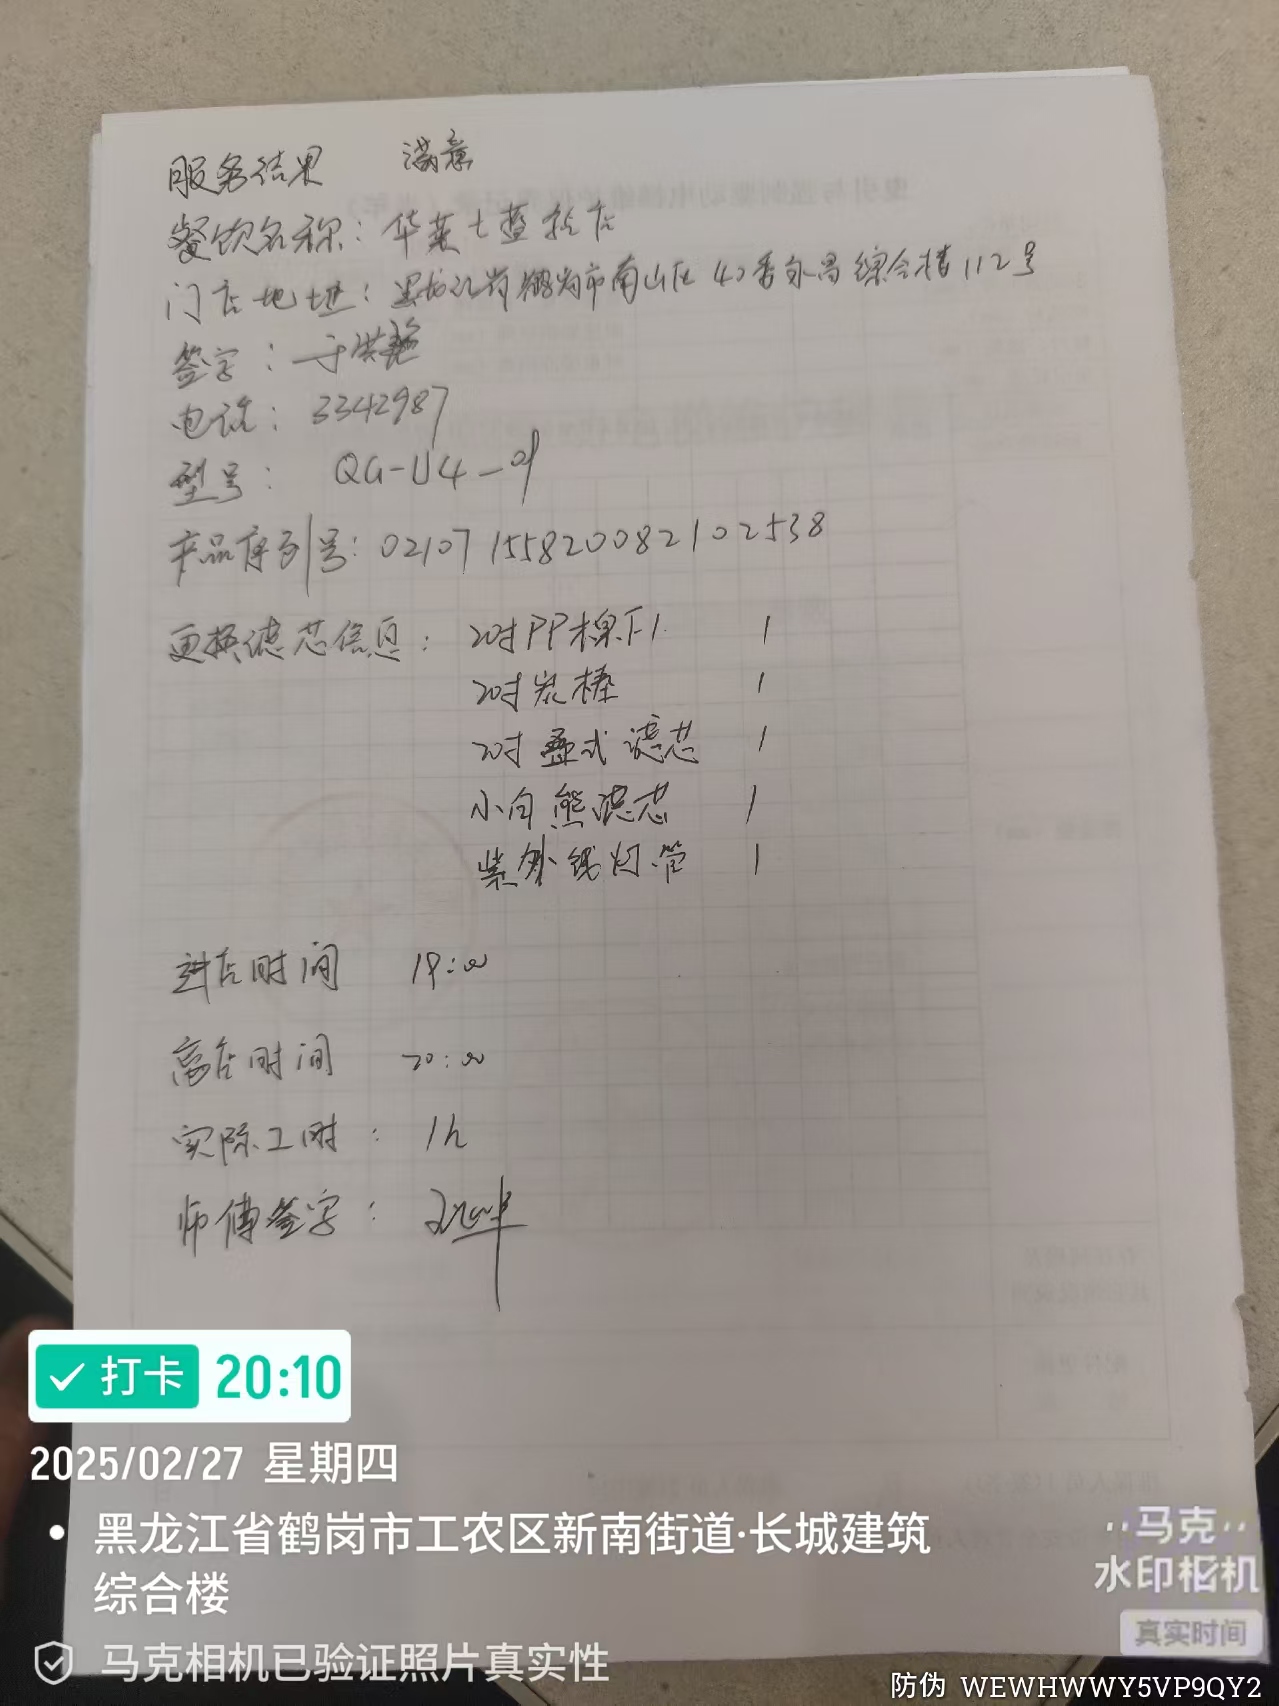 服务结果 满意
餐饮名称：华莱士 店
门店地址：黑龙江省鹤岗市南山区40 综合楼112号
签字：于洪艳
电话：3342987
型号：QG-U4-01
产品序列号：02107155820082102538
更换滤芯信息：20寸PP棉F1 1
20寸炭棒 1
20寸叠式滤芯 1
小白熊滤芯 1
紫外线灯管 1
进店时间 19:00
离店时间 20:00
实际工时：1h
师傅签字：
打卡 20:10
2025/02/27 星期四
黑龙江省鹤岗市工农区新南街道·长城建筑
综合楼
马克相机已验证照片真实性
马克
水印相机
真实时间
防伪 WEWHWWY5VP9QY2